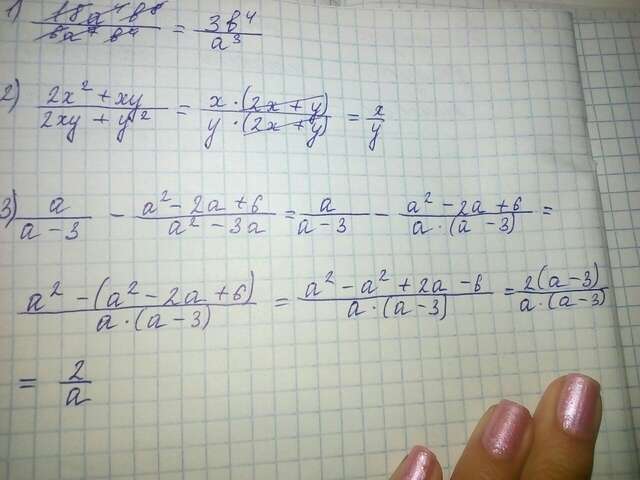 1) 18a⁴b⁸ / 6a⁷b⁴ = 3b⁴ / a³
2) 2x² + xy / 2xy + y² = x · (2x + y) / y · (2x + y) = x / y
3) a / a - 3 - a² - 2a + 6 / a² - 3a = a / a - 3 - a² - 2a + 6 / a · (a - 3) =
a² - (a² - 2a + 6) / a · (a - 3) = a² - a² + 2a - 6 / a · (a - 3) = 2(a - 3) / a · (a - 3)
= 2 / a